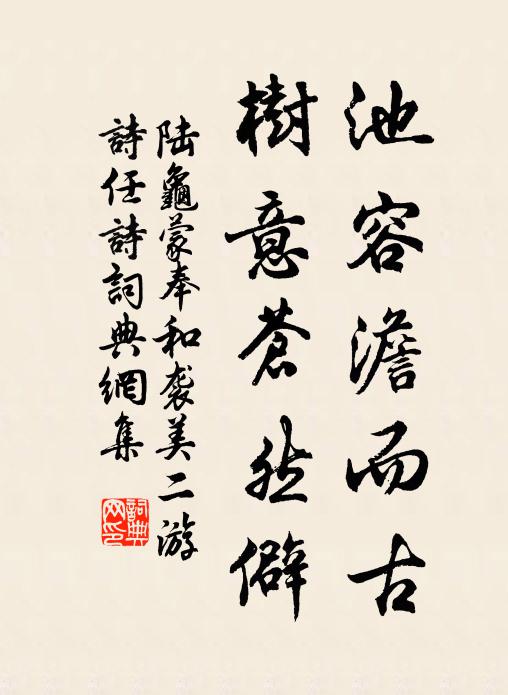 池容澹而古
樹意蒼然僻
陆龜蒙奉和袭美二游
詩任詩詞典網集
詞典
网印